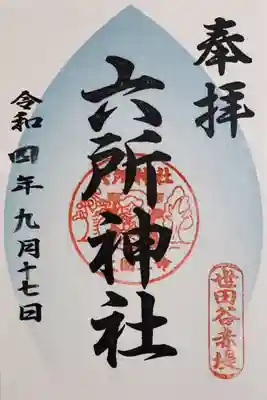 奉拝
六所神社
世田谷赤堤
令和四年九月十七日